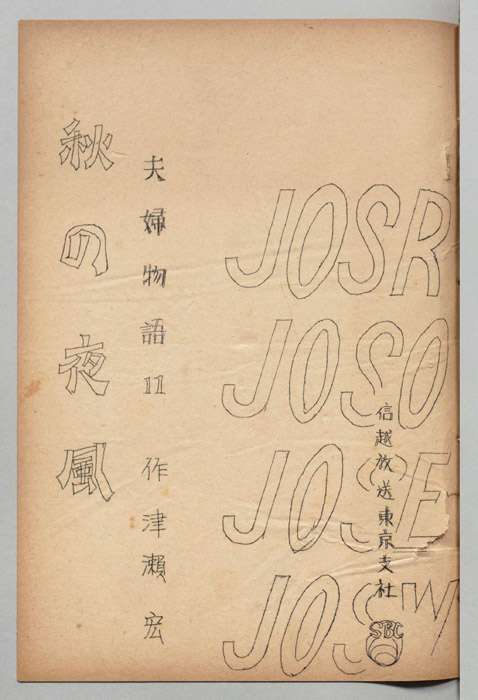 JOSR
JOSO
JOSE
JOSW
信越放送東京支社
SBC
夫婦物語 11 作 津瀬宏
秋の夜風